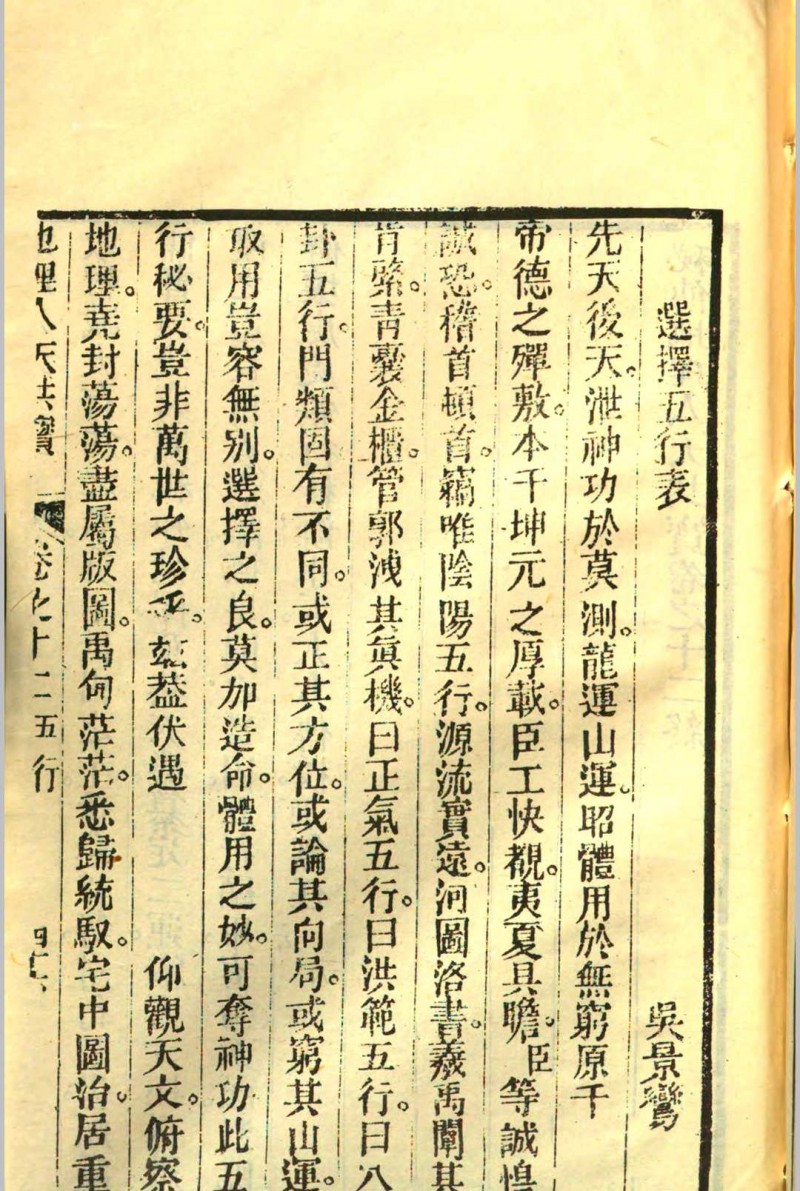 選擇五行表 吳景鸞
先天後天。泄神功於莫測。龍運山運。昭體用於無窮原千
帝德之殫敷。本千坤元之厚載。臣工快覩。夷夏具瞻。臣等誠惶
誠恐。稽首頓首。竊唯陰陽五行。源流實遠。河圖洛書。羲禹闡其
肯綮。青囊金櫃。管郭洩其眞機。曰正氣五行。曰洪範五行。曰八
卦五行。門類固有不同。或正其方位。或論其向局。或窮其山運。
取用豈容無別。選擇之良。莫加造命。體用之妙。可奪神功此五
行秘要。豈非萬世之珍 玆葢伏遇 仰觀天文。俯察
地理。堯封蕩蕩。盡屬版圖。禹甸茫茫。悉歸統馭。宅中圖治。居重
地理人天共寳 卷之十二五行